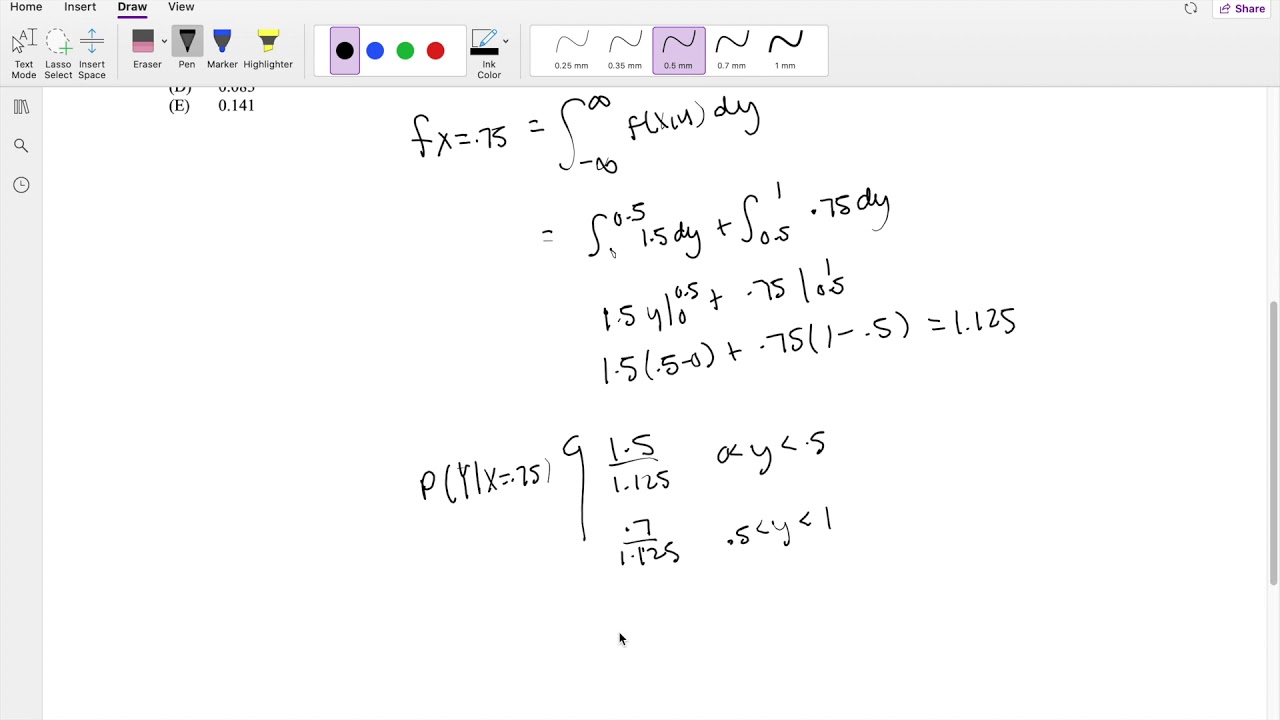 Home Insert Draw View
Share
Text Mode
Lasso Select
Insert Space
Eraser
Pen
Marker
Highlighter
Ink Color
0.25 mm
0.35 mm
0.5 mm
0.7 mm
1 mm
(D) 0.083
(E) 0.141
f x=.75 = ∫_{-∞}^{∞} f(x,y) dy
= ∫_0^{0.5} 1.5 dy + ∫_{0.5}^{1} .75 dy
1.5 y|_0^{0.5} + .75 |_{0.5}^{1}
1.5(.5-0) + .75(1-.5) = 1.125
P(Y|X=.75) { 1.5/1.125 0<y<.5
.7/1.125 .5<y<1